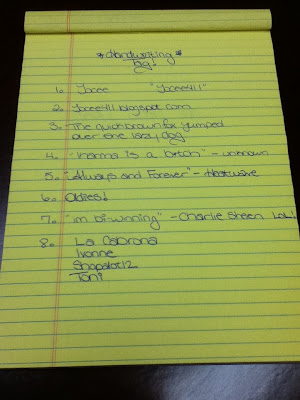 *Handwriting*
Tag!
1. Ybcee "Ybcee411"
2. Ybcee411.blogspot.com
3. The quick brown fox jumped
over one lazy dog
4. "Karma is a bitch" - unknown
5. "Always and Forever" - Heatwave
6. Oldies!
7. "im bi-winning" - Charlie Sheen LoL!
8. La Cabrona
Ivonne
Shopalot12
Toni